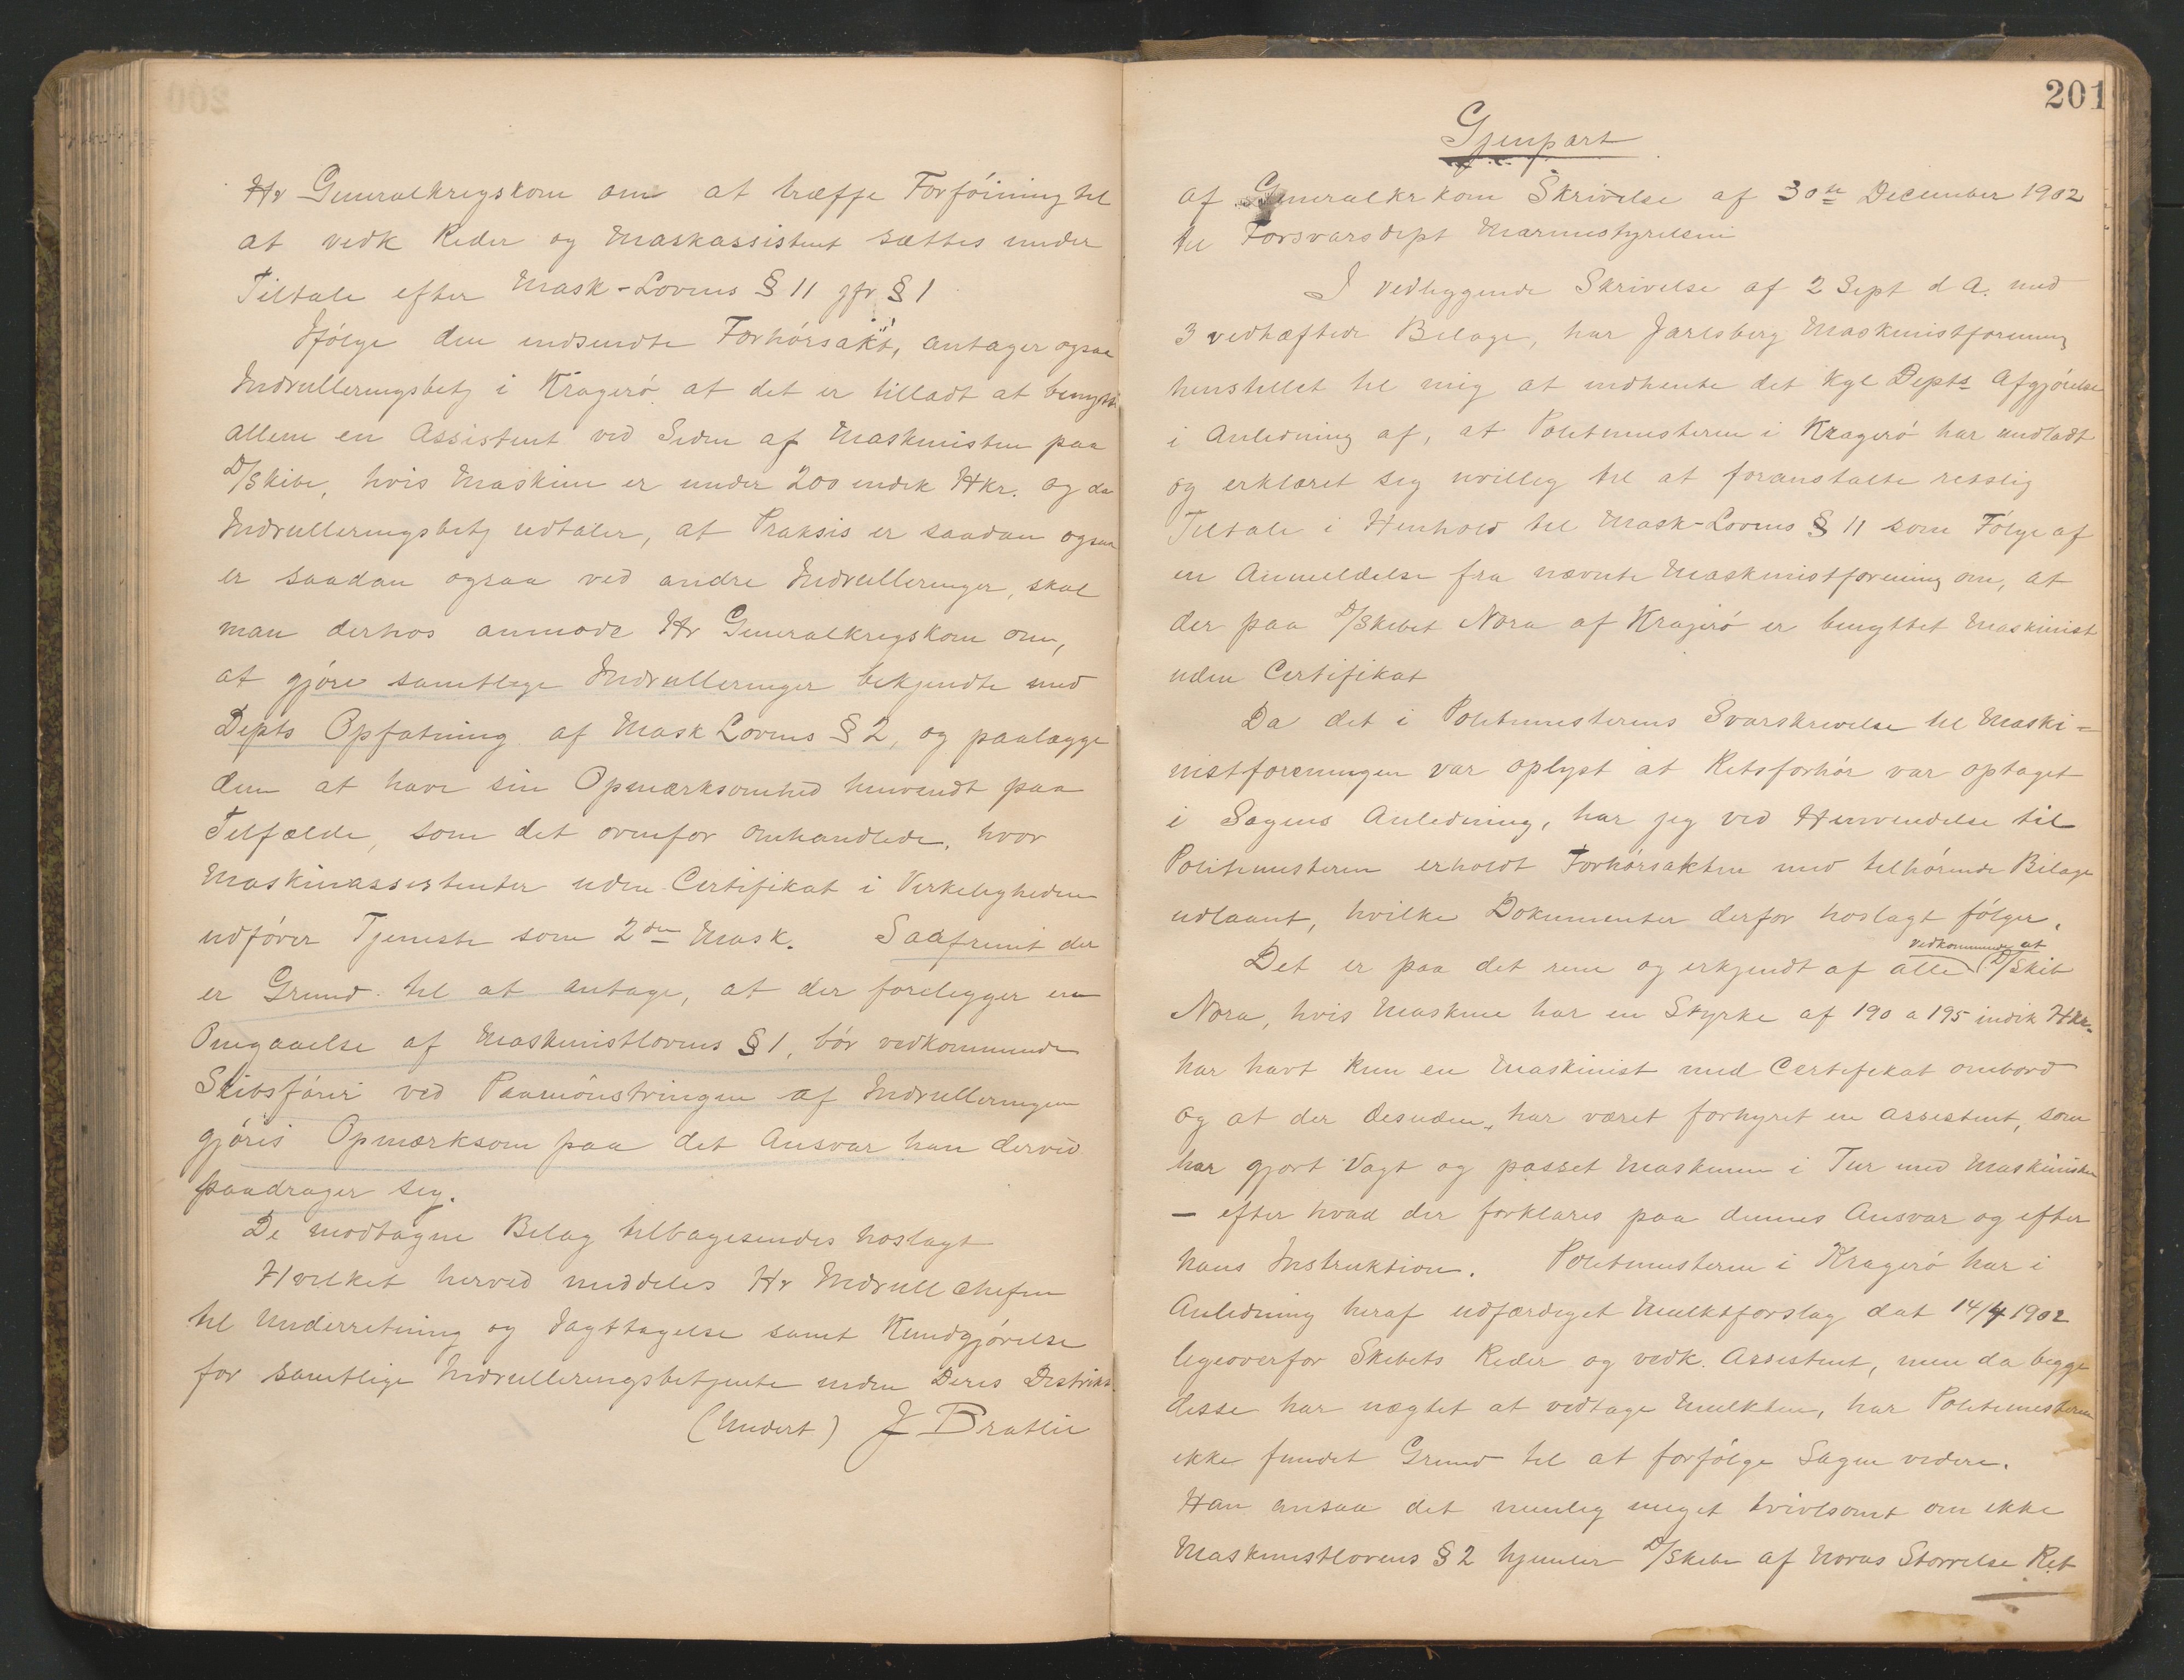 Hr Generalkrigskom om at træffe Forføining til
at vedk Reder og Maskassistent sættes under
Tiltale efter Mask-Lovens § 11 jfr § 1
Ifølge den indsendte Forhørsakt, antager ogsaa
Indrulleringsbetj i Kragerø at det er tilladt at benytte
allene en Assistent ved Siden af Maskinisten paa
D/Skibe, hvis Maskine er under 200 indik Hkr. og da
Indrulleringsbetj udtaler, at Praksis er saadan ogsaa
er saadan ogsaa ved andre Indrulleringer, skal
man derhos anmode Hr Generalkrigskom om,
at gjøre samtlige Indrulleringer bekjendte med
Depts Opfatning af Mask Lovens § 2, og paalægge
dem at have sin Opmærksomhed henvendt paa
Tilfælde, som det ovenfor omhandlede, hvor
Maskinassistenter uden Certifikat i Virkeligheden
udfører Tjeneste som 2den Mask. Saafremt der
er Grund til at antage, at der foreligger en
Omgaaelse af Maskinistlovens § 1, bør vedkommende
Skibsfører ved Paamønstringen af Indrulleringen
gjøres Opmærksom paa det Ansvar han derved
paadrager sig.
De modtagne Bilag tilbagesendes hoslagt
Hvilket herved meddeles Hr Indrull chefen
til Underretning og Iagttagelse samt Kundgjørelse
for samtlige Indrulleringsbetjente inden Deres Distrikt.
(Undert) J Bratlie
201
Gjenpart
af Generalkrkom Skrivelse af 30te December 1902
til Forsvarsdept Marinestyrelsen
I vedliggende Skrivelse af 2 Sept d A. med
3 vedhæftede Bilage, har Jarlsberg Maskinistforening
henstillet til mig at indhente det kgl Depts Afgjørelse
i Anledning af, at Politimesteren i Kragerø har undladt
og erklæret sig uvillig til at foranstalte retslig
Tiltale i Henhold til Mask-Lovens § 11 som Følge af
en Anmeldelse fra nævnte Maskinistforening om, at
der paa D/Skibet Nora af Kragerø er benyttet Maskinist
uden Certifikat
Da det i Politimesterens Svarskrivelse til Maski-
nistforeningen var oplyst at Retsforhør var optaget
i Sagens Anledning, har jeg ved Henvendelse til
Politimesteren erholdt Forhørsakten med tilhørende Bilage
udlaant, hvilke Dokumenter derfor hoslagt følger.
Det er paa det rene og erkjendt af alle vedkommende at D/Skib
Nora, hvis Maskine har en Styrke af 190 a 195 indik Hkr.
har havt kun en Maskinist med Certifikat ombord
og at der desuden, har været forhyret en assistent, som
har gjort Vagt og passet Maskinen i Tur med Maskinisten
– efter hvad der forklares paa dennes Ansvar og efter
hans Instruktion. Politimesteren i Kragerø har i
Anledning heraf udfærdiget Mulktforslag dat 14/4 1902
ligeoverfor Skibets Reder og vedk. Assistent, men da begge
disse har nægtet at vedtage Mulkten, har Politimesteren
ikke fundet Grund til at forfølge Sagen videre.
Han ansaa det nemlig meget tvivlsomt om ikke
Maskinistlovens § 2 hjemler D/Skibe af Noras Størrelse Ret